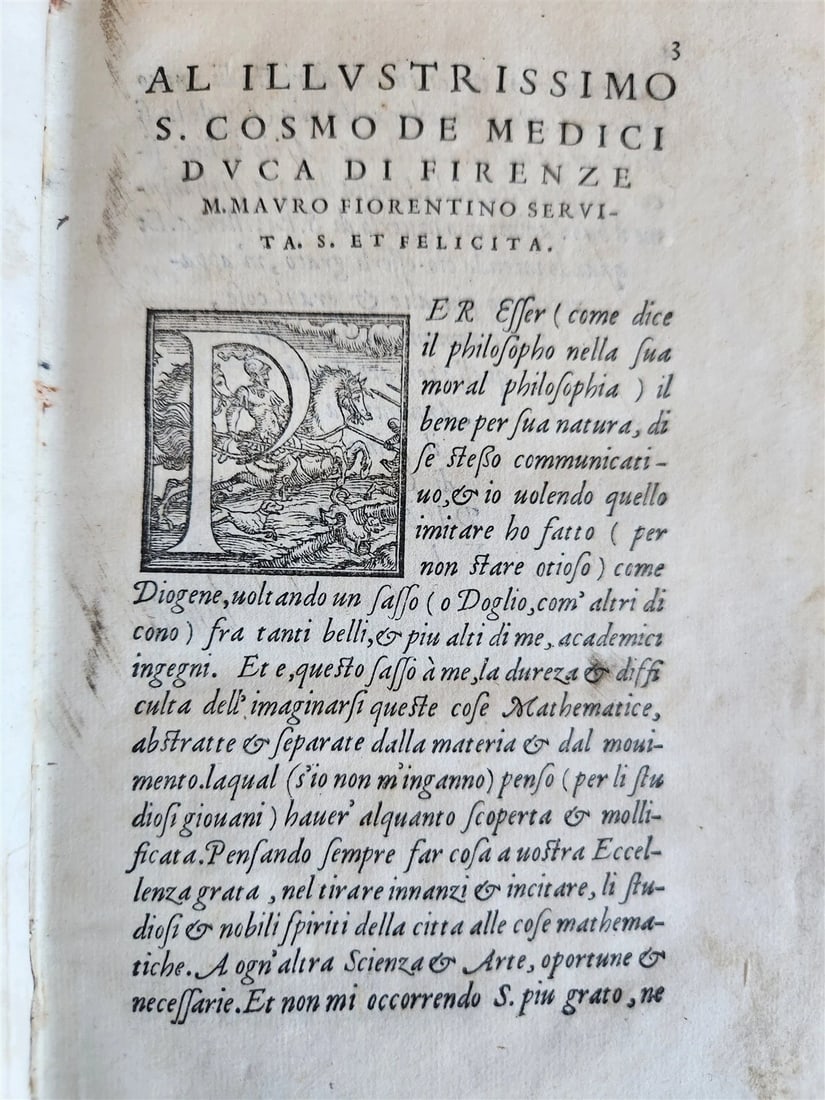 3
AL ILLVSTRISSIMO
S. COSMO DE MEDICI
DVCA DI FIRENZE
M. MAVRO FIORENTINO SERVI-
TA. S. ET FELICITA.
PER Eſſer (come dice
il philoſopho nella ſua
moral philoſophia ) il
bene per ſua natura, di
ſe ſteßo communicati-
uo,& io uolendo quello
imitare ho fatto ( per
non ſtare otioſo ) come
Diogene,uoltando un ſaſſo ( o Doglio,com' altri di
cono ) fra tanti belli,& piu alti di me, academici
ingegni. Et e,queſto ſaſſo à me,la dureza & diffi
culta dell' imaginarſi queſte coſe Mathematice,
abſtratte & ſeparate dalla materia & dal moui-
mento.laqual (s'io non m'inganno) penſo (per li ſtu
dioſi giouani ) hauer' alquanto ſcoperta & molli-
ficata.Penſando ſempre far coſa a uoſtra Eccel-
lenza grata , nel tirare innanzi & incitare, li ſtu-
dioſi & nobili ſpiriti della citta alle coſe mathema-
tiche. A ogn'altra Scienza & Arte, oportune &
neceſſarie.Et non mi occorrendo S. piu grato , ne